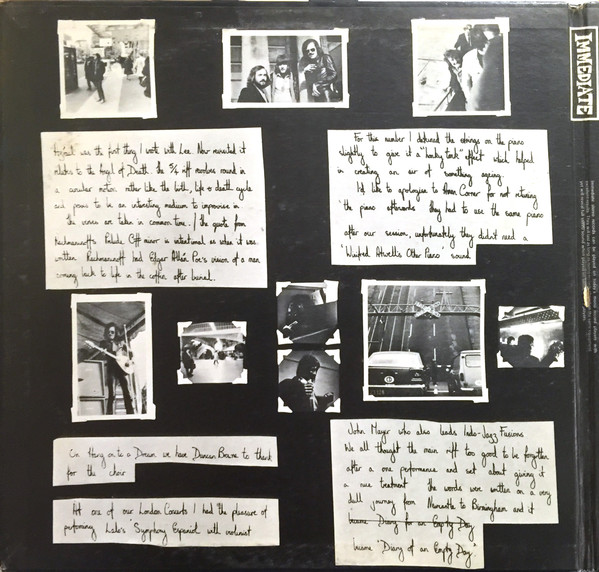 IMMEDIATE
Azrael was the first thing I wrote with Lee. Now revisited it
relates to the Angel of Death. The 5/4 riff revolves round in
a circular motion rather like the birth, life & death cycle
and proves to be an interesting medium to improvise in
the verses are taken in common time. / The quote from
Rachmannoff's Prelude C# minor is intentional as when it was
written Rachmannoff had Edgar Allan Poe's vision of a man
coming back to life in the coffin after burial.
For this number I detuned the strings on the piano
slightly to give it a "honky tonk" effect which helped
in creating an air of something ageing.
I'd like to apologise to Amen Corner for not retuning
the piano afterwards they had to use the same piano
after our session, unfortunately they didn't need a
'Winifred Atwell's Other Piano' sound
On Hang on to a Dream we have Duncan Browne to thank
for the choir
At one of our London Concerts I had the pleasure of
performing Lalo's 'Symphony Espanol' with violinist
John Mayer who also leads Indo-Jazz Fusions
We all thought the main riff too good to be forgotten
after a one performance and set about giving it
a nice treatment the words were written on a very
dull journey from Newcastle to Birmingham and it
became 'Diary for an Empty Day
became "Diary of an Empty Day"